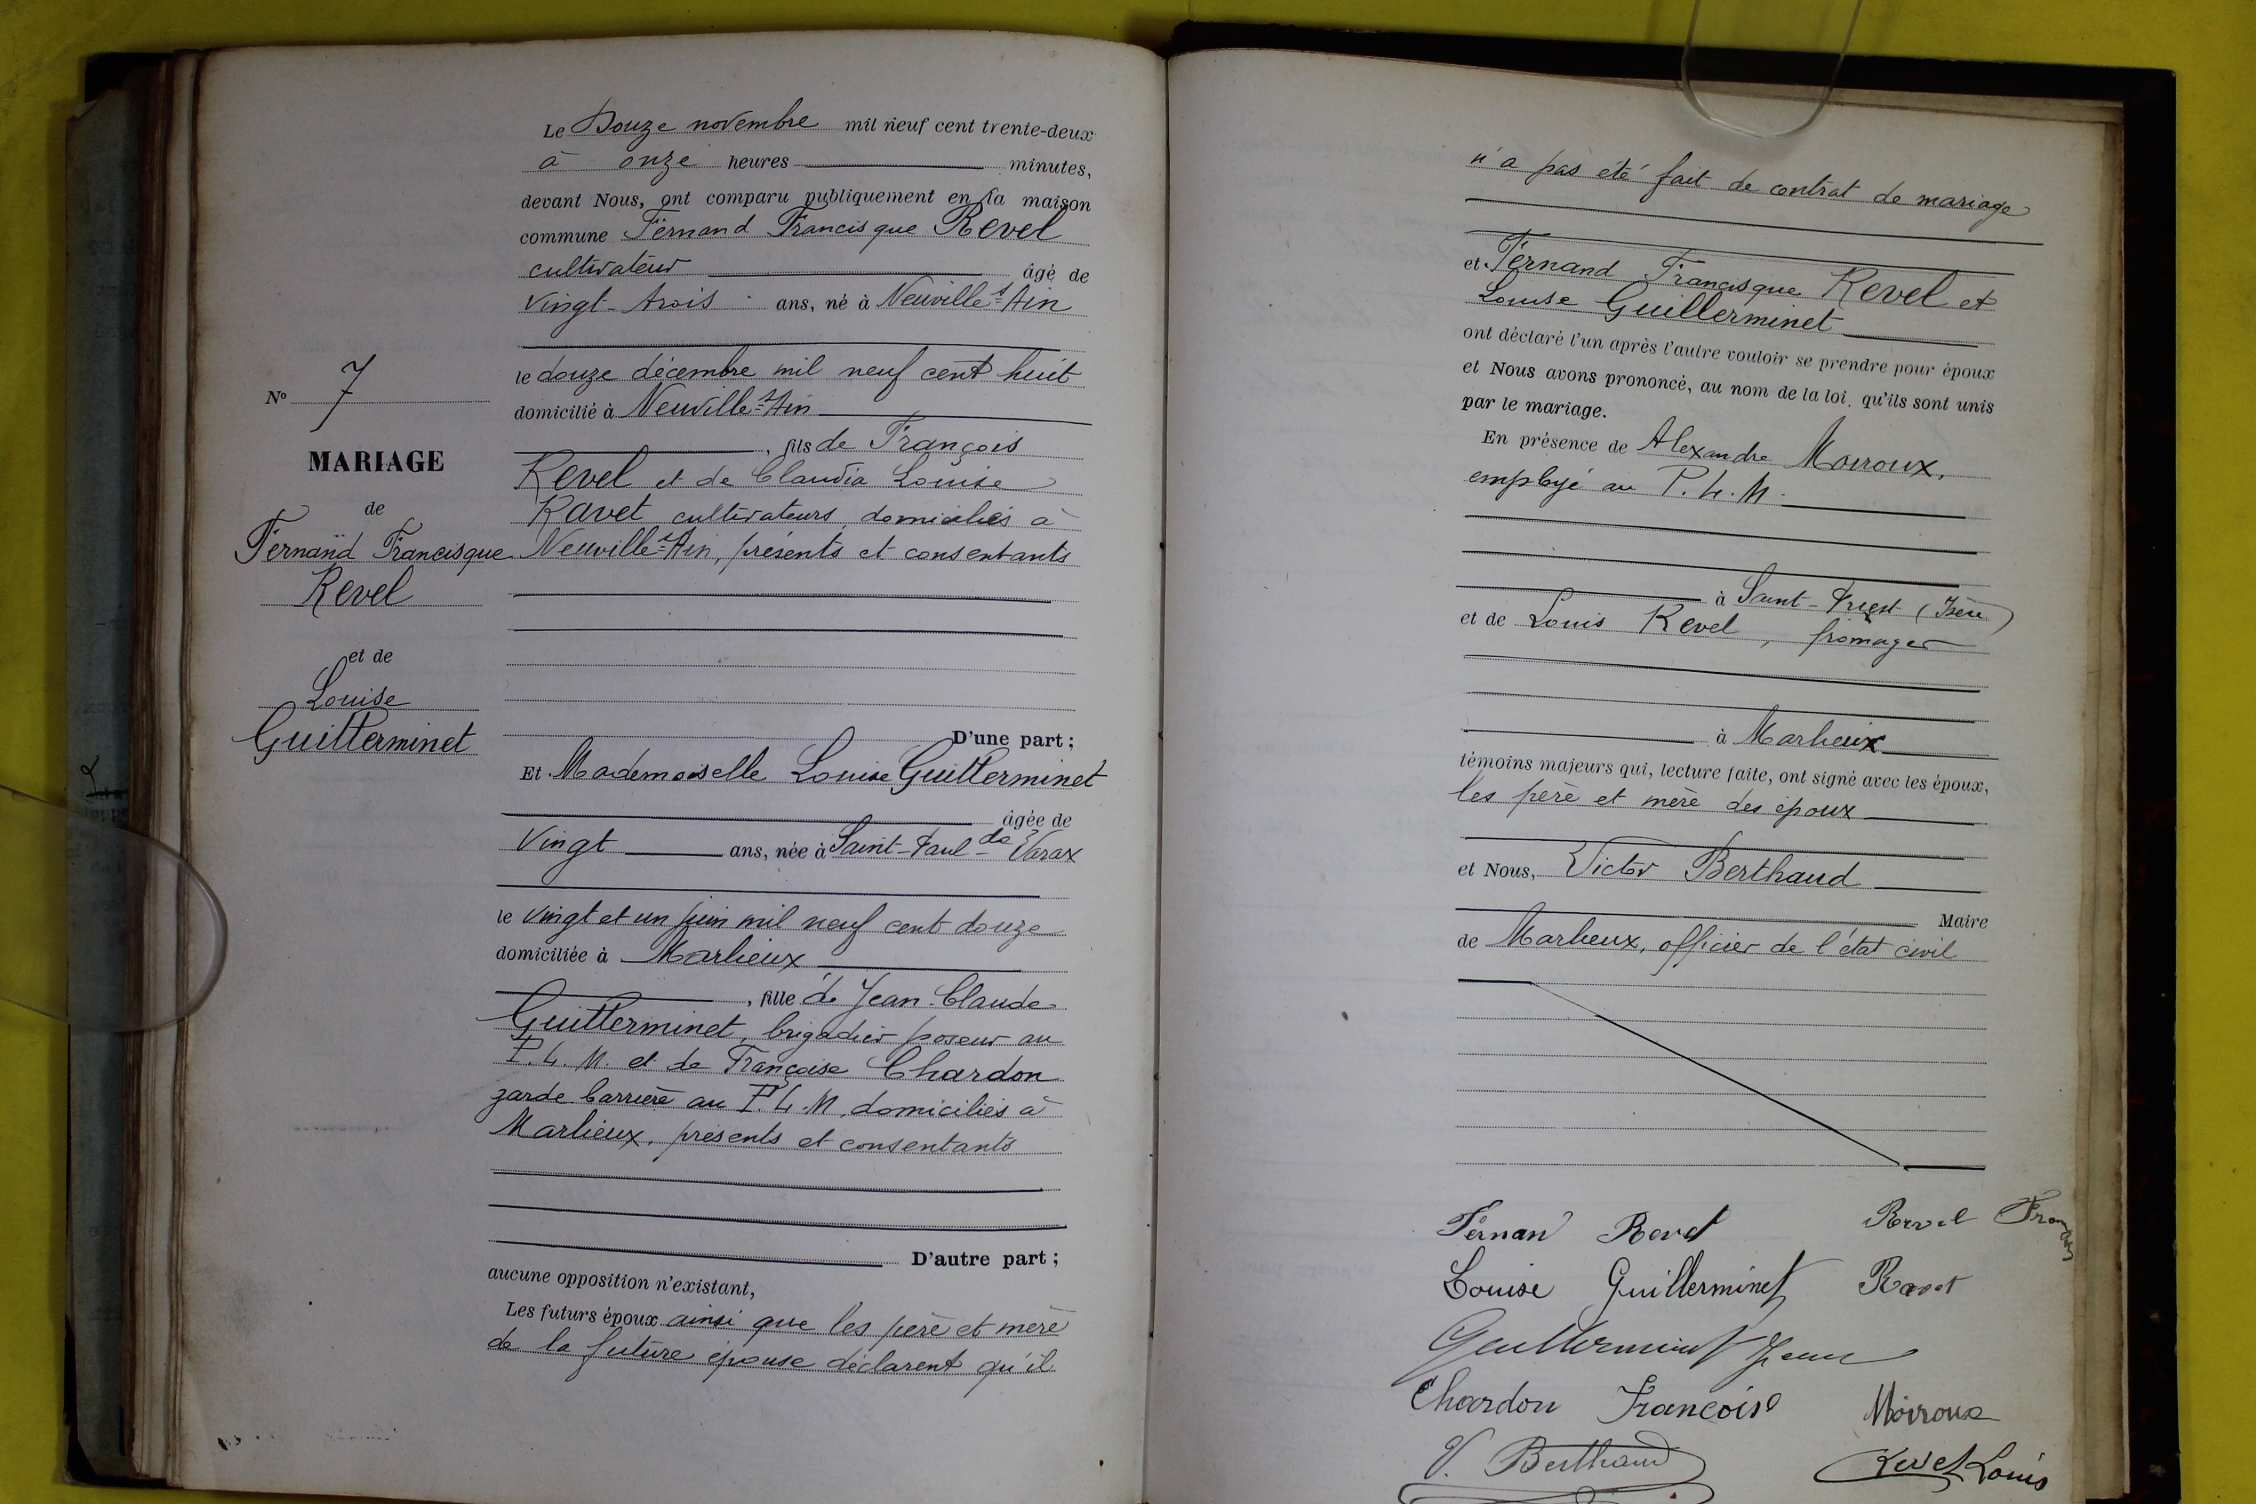 Le Douze novembre mil neuf cent trente-deux
à onze heures minutes,
devant Nous, ont comparu publiquement en la maison
commune Fernand Francisque Revel
cultivateur âgé de
vingt-trois ans, né à Neuville s/ Ain
le douze décembre mil neuf cent huit
domicilié à Neuville s/ Ain
, fils de François
Revel et de Claudia Louise
Ravet cultivateurs, domiciliés à
Neuville s/ Ain, présents et consentants
D'une part ;
Nº 7
MARIAGE
de
Fernand Francisque
Revel
et de
Louise
Guillerminet
Et Mademoiselle Louise Guillerminet
âgée de
vingt ans, née à Saint-Paul de Varax
le vingt et un juin mil neuf cent douze
domiciliée à Marlieux
, fille de Jean-Claude
Guillerminet, brigadier poseur au
P.L.M. et de Françoise Chardon
garde barrière au P.L.M, domiciliés à
Marlieux, présents et consentants
D'autre part ;
aucune opposition n'existant,
Les futurs époux ainsi que les père et mère
de la future épouse déclarent qu'il
n'a pas été fait de contrat de mariage
et Fernand Francisque Revel et
Louise Guillerminet
ont déclaré l'un après l'autre vouloir se prendre pour époux
et Nous avons prononcé, au nom de la loi, qu'ils sont unis
par le mariage.
En présence de Alexandre Moiroux,
employé au P.L.M.
à Saint-Priest (Isère)
et de Louis Revel, fromager
à Marlieux
témoins majeurs qui, lecture faite, ont signé avec les époux,
les père et mère des époux
et Nous, Victor Berthaud
Maire
de Marlieux, officier de l'état civil
Fernan Revel Revel François
Louise Guillerminet Ravet
Guillerminet Jean
Chardon Françoise Moiroux
V. Berthaud Revel Louis